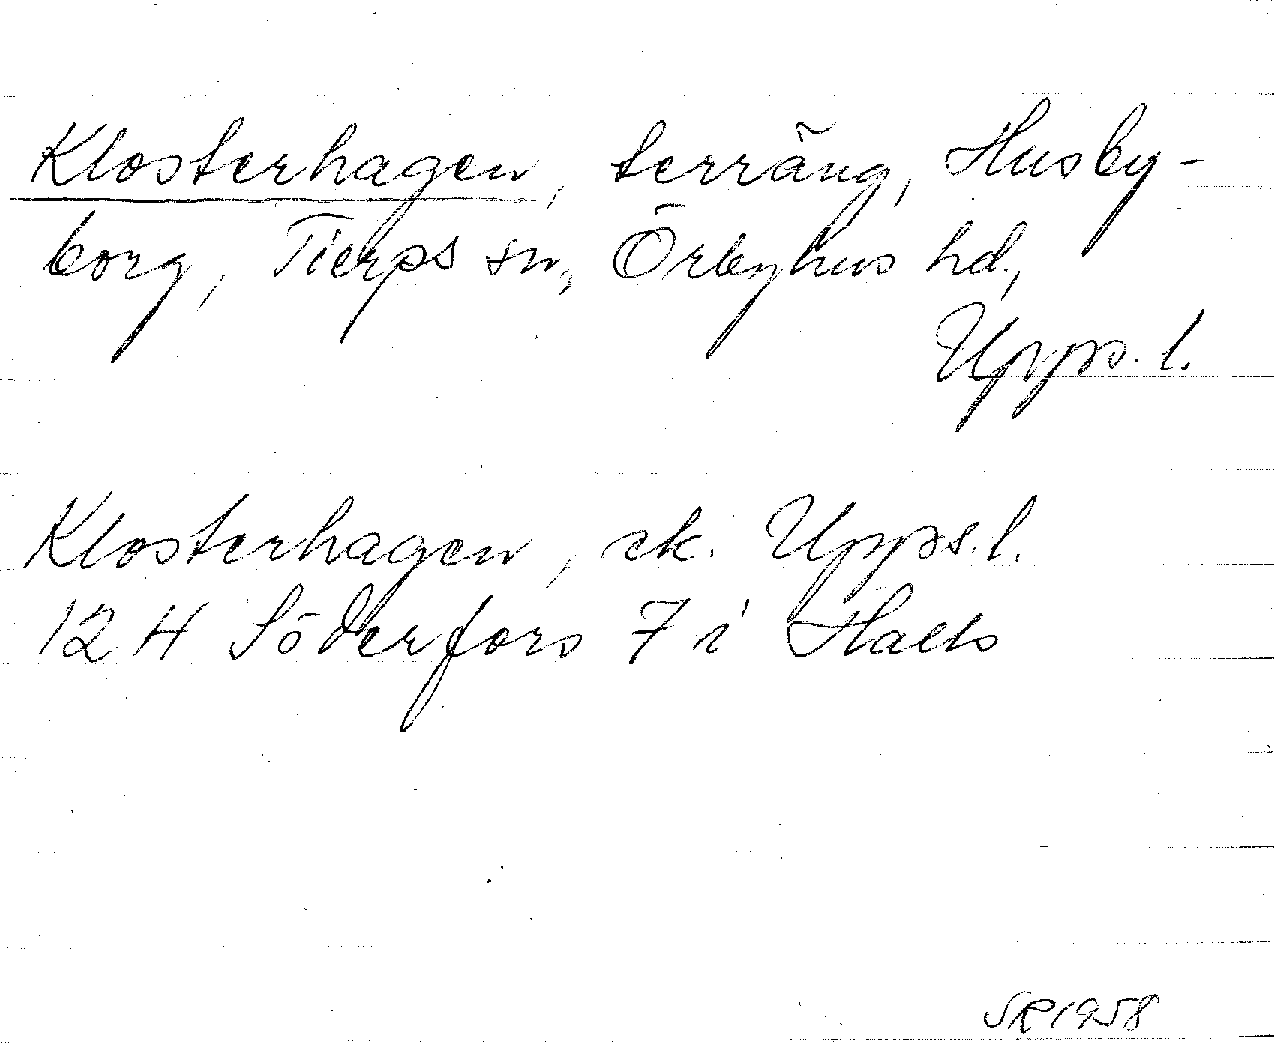 Klosterhagen, terräng, Husby-
borg, Tierps sn, Örbyhus hd,
Upps. l.
Klosterhagen, ek. Upps. l.
12 H Söderfors 7 i Halls
SR 1958